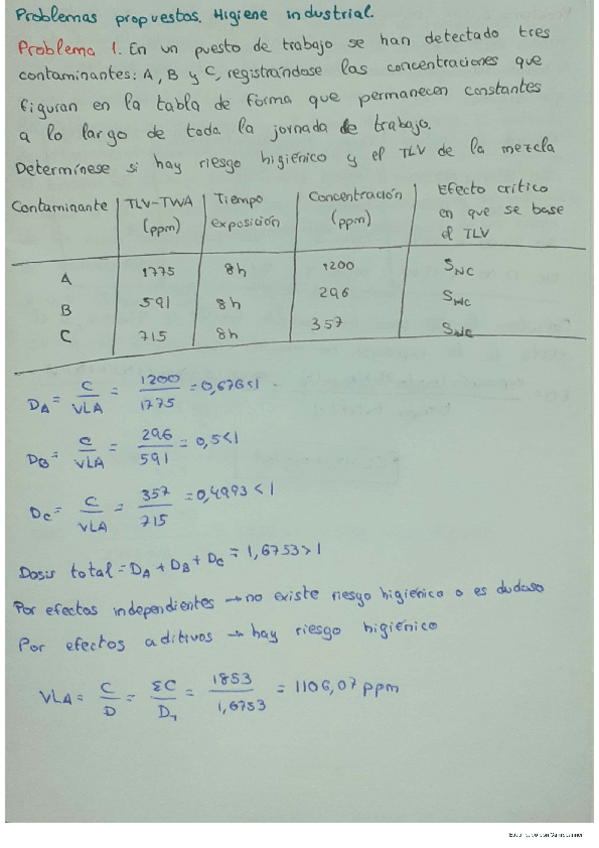 Problemas propuestos. Higiene industrial.
Problema 1. En un puesto de trabajo se han detectado tres
contaminantes: A, B y C, registrándose las concentraciones que
figuran en la tabla de forma que permanecen constantes
a lo largo de toda la jornada de trabajo.
Determínese si hay riesgo higiénico y el TLV de la mezcla
Contaminante | TLV-TWA (ppm) | Tiempo exposición | Concentración (ppm) | Efecto crítico en que se base el TLV
A 1775 8h 1200 SNC
B 591 8h 296 SNC
C 715 8h 357 SNC
DA = C/VLA = 1200/1775 = 0,676 < 1
DB = C/VLA = 296/591 = 0,5 < 1
DC = C/VLA = 357/715 = 0,4993 < 1
Dosis total = DA + DB + DC = 1,6753 > 1
Por efectos independientes → no existe riesgo higiénico o es dudoso
Por efectos aditivos → hay riesgo higiénico
VLA = C/D = ΣC/DT = 1853/1,6753 = 1106,07 ppm